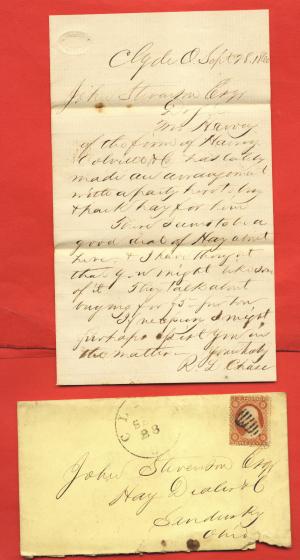 Clyde O. Sept 28. 1860
John Stevenson Esqr
Mr. Harvey
of the firm of Harvey
Colville & C has lately
made an arrangement
with a party here to buy
& pack hay for him
There seems to be a
good deal of Hay about
here, & I have thought
that you might like some
of it They talk about
buying for $5- per ton
If necessary I might
perhaps assist you in
the matter. Yours truly
R. L. Chase
CL
SEP
28
John Stevenson Esqr
Hay Dealer & C
Sandusky
Ohio